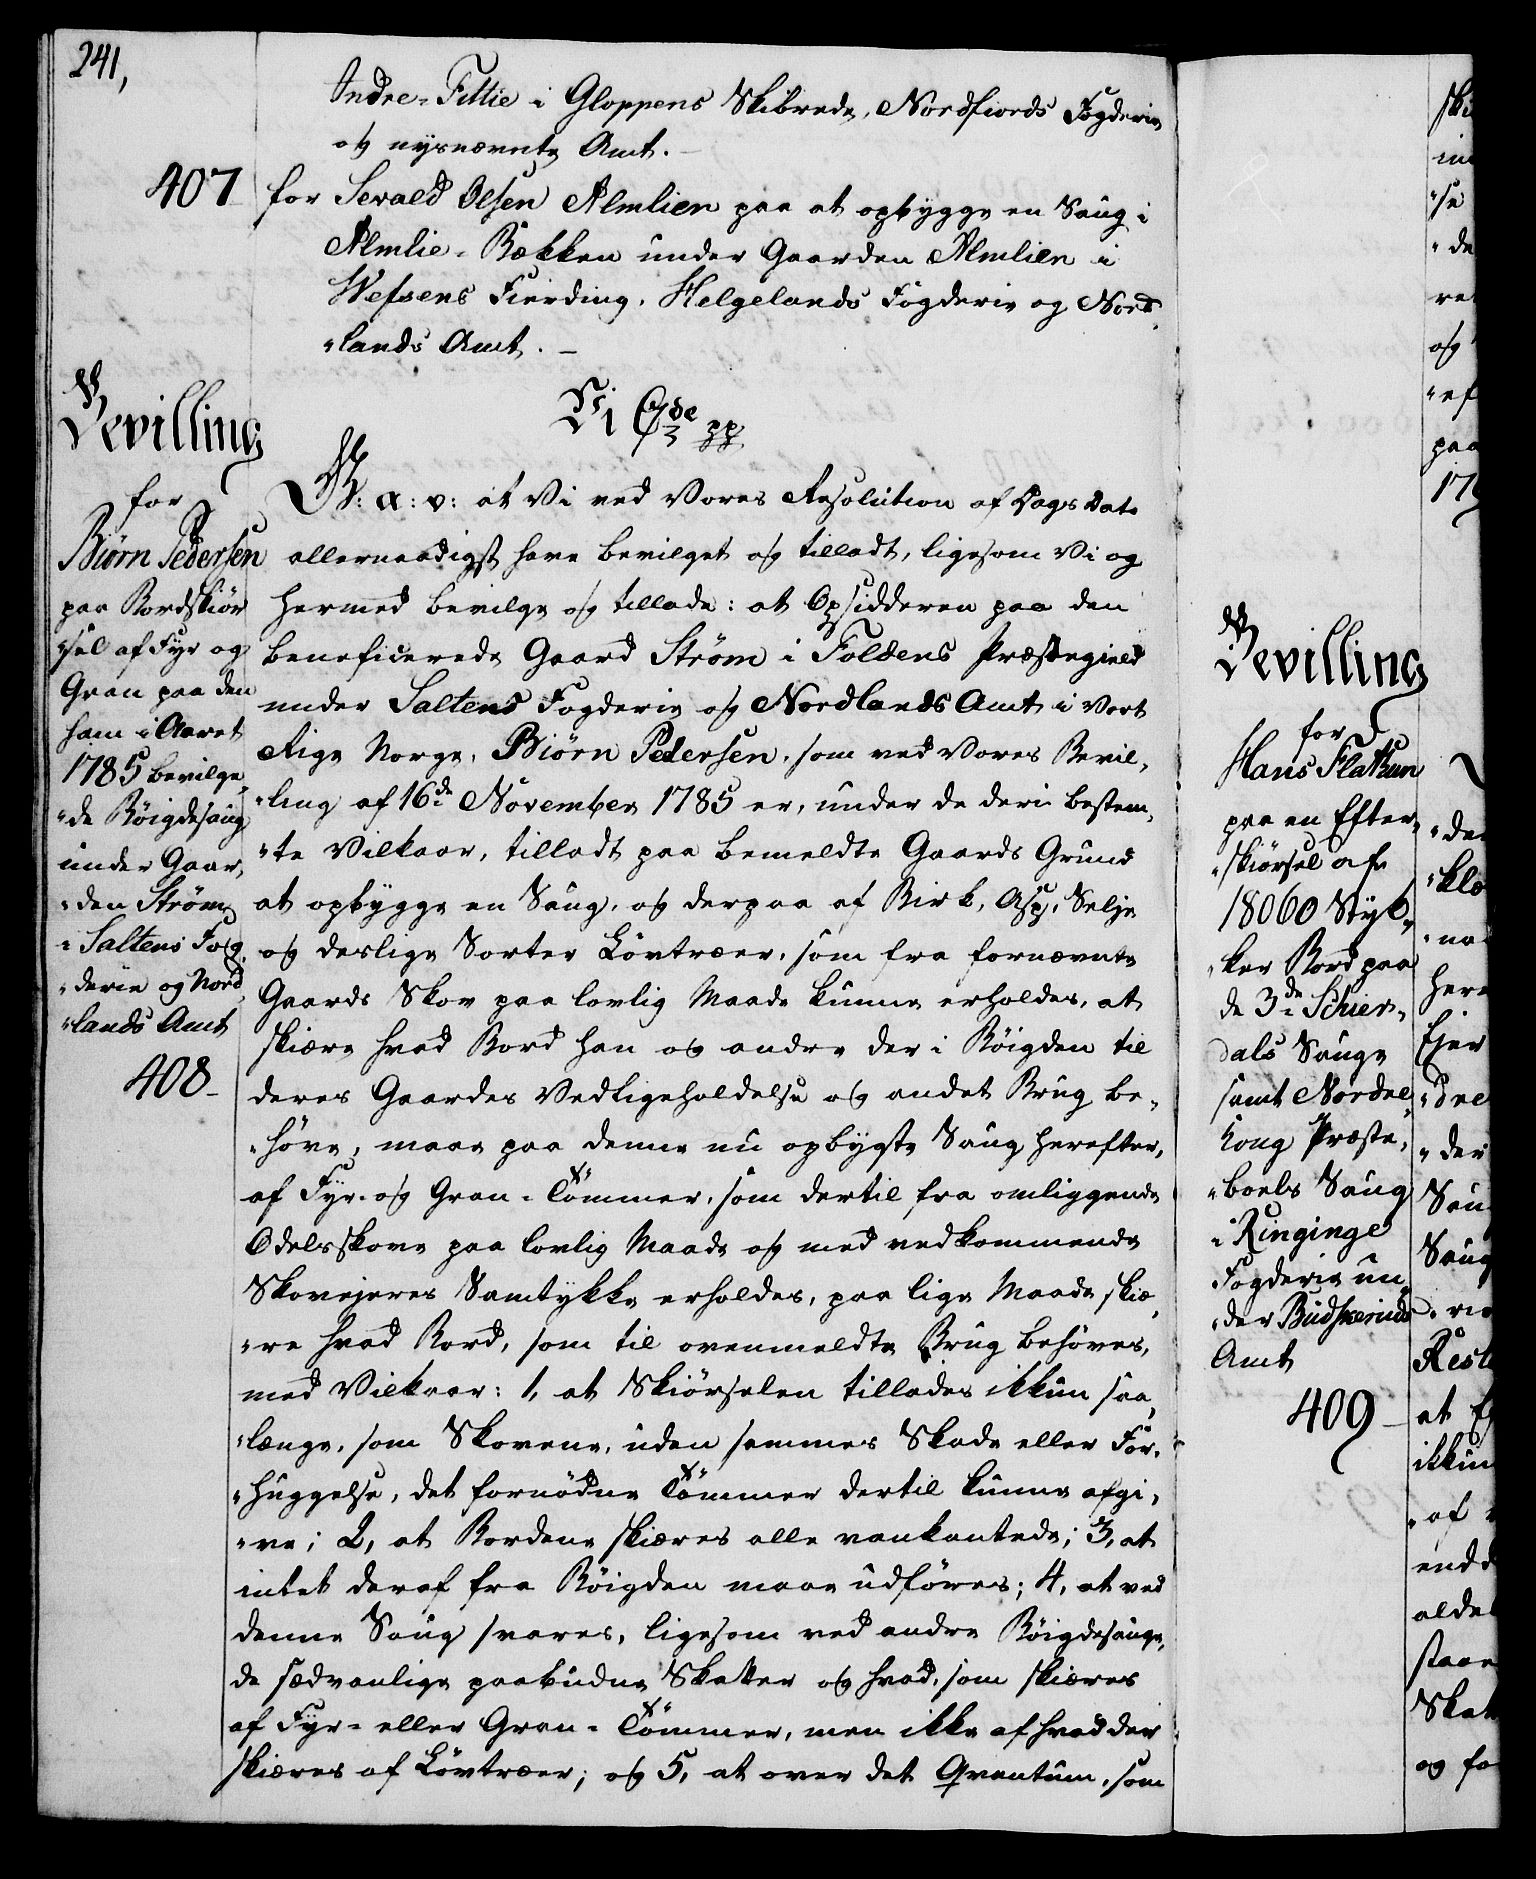 241,
Indre-Fittie i Gloppens Skibrede, Nordfiords Fogderie
og nysnævnte Amt. –
407 for Sevald Olsen Almlien paa at opbygge en Saug i
Almlie-Bækken under Gaarden Almlien i
Wefsens Fierding, Helgelands Fogderie og Nord-
"lands Amt. –
Bevilling
for
Biørn Pedersen
paa Bordskiør
"sel af Fyr og
Gran paa den
ham i Aaret
1785 bevilge,
"de Bøigdesaug
under Gaar,
"den Strøm
i Saltens Fog,
"derie og Nord,
"lands Amt
408 –
Vi C 7de pp
G: A: V: at Vi ved Vores Resolution af Dags Dato
allernaadigst have bevilget og tilladt, ligesom Vi og
hermed bevilge og tillade: at Opsidderen paa den
beneficerede Gaard Strøm i Foldens Præstegield
under Saltens Fogderie og Nordlands Amt i Vort
Rige Norge, Biørn Pedersen, som ved Vores Bevil,
"ling af 16de November 1785 er, under de deri bestem,
"te Vilkaar, tilladt paa bemeldte Gaards Grund
at opbygge en Saug, og derpaa af Birk, Asp, Selje
og deslige Sorter Løvtræer, som fra fornævnte
Gaards Skov paa lovlig Maade kunne erholdes, at
skiære hvad Bord han og andre der i Bøigden til
deres Gaardes Vedligeholdelse og andet Brug be-
"høve, maae paa denne nu opbygte Saug herefter,
af Fyr- og Gran-Tømmer, som dertil fra omliggende
Odelsskove paa lovlig Maade og med vedkommende
Skovejeres Samtykke erholdes, paa lige Maade skiæ,
"re hvad Bord, som til ovenmeldte Brug behøves,
med Vilkaar: 1, at Skiørselen tillades ikkun saa,
"længe, som Skovene, uden sammes Skade eller For-
"huggelse, det fornødne Tømmer dertil kunne afgi,
"ve; 2, at Bordene skiæres alle vankantede; 3, at
intet deraf fra Bøigden maae udføres; 4, at ved
denne Saug svares, ligesom ved andre Bøigdesauge,
de sædvanlige paabudne Skatter og hvad, som skiæres
af Fyr- eller Gran-Tømmer, men ikke af hvad der
skiæres af Løvtræer; og 5, at over det Qvantum, som
Bevilling
for
Hans Flattum
paa en Efter,
"skiørsel af
18060 Styk,
"ker Bord paa
de 3de Schier,
dals Sauge
samt Nordre
Præste,
"boels Saug
i Ringinge
Fogderie un,
"der Budskeruds
Amt
409 –
"se
"de
og
"ef
paa
"der
"klæ
here
Ejer
"dre
"der
Sau
Saug
Rest
at
ikkun
"af
staae
Skat
og fo